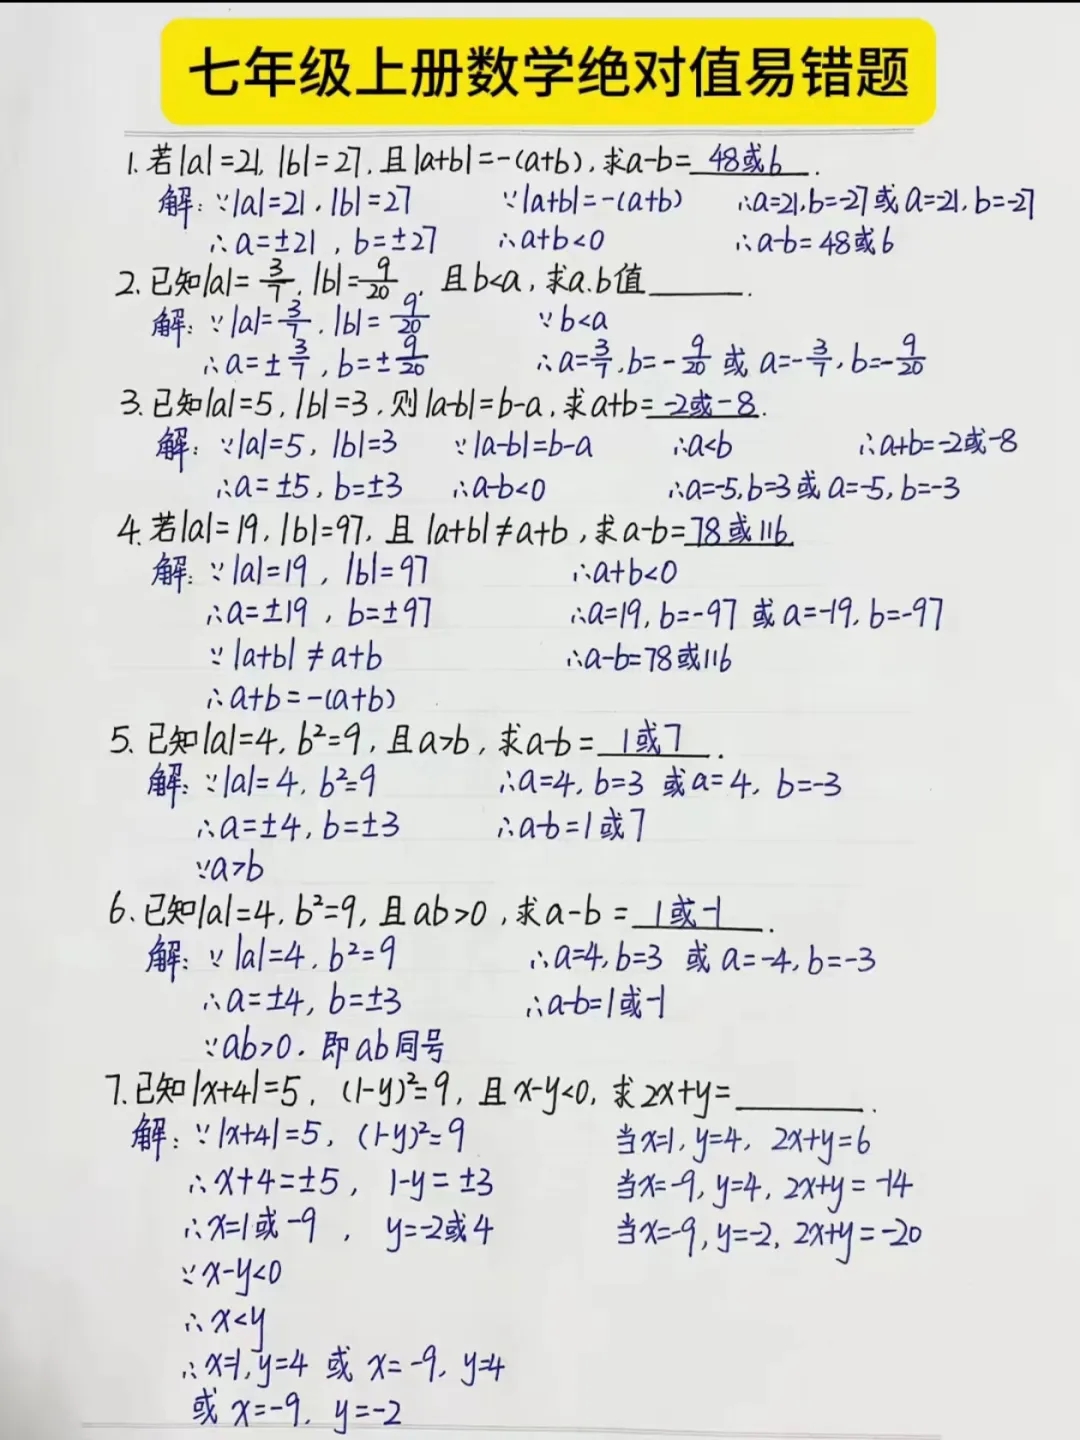 七年级上册数学绝对值易错题
1. 若|a|=21, |b|=27, 且|a+b|=-(a+b), 求a-b=48或6.
解: ∵|a|=21, |b|=27 ∵|a+b|=-(a+b) ∴a=21,b=-27或a=21,b=-27
∴a=±21, b=±27 ∴a+b<0 ∴a-b=48或6
2. 已知|a|=3/7, |b|=9/20, 且b<a, 求a.b值______.
解: ∵|a|=3/7, |b|=9/20 ∵b<a
∴a=±3/7, b=±9/20 ∴a=3/7,b=-9/20 或 a=-3/7,b=-9/20
3. 已知|a|=5, |b|=3, 则|a-b|=b-a, 求a+b=-2或-8.
解: ∵|a|=5, |b|=3 ∵|a-b|=b-a ∴a<b ∴a+b=-2或-8
∴a=±5, b=±3 ∴a-b<0 ∴a=-5,b=3或a=-5,b=-3
4. 若|a|=19, |b|=97, 且|a+b|≠a+b, 求a-b=78或116
解: ∵|a|=19, |b|=97 ∴a+b<0
∴a=±19, b=±97 ∴a=19, b=-97 或 a=-19, b=-97
∵|a+b|≠a+b ∴a-b=78或116
∴a+b=-(a+b)
5. 已知|a|=4, b²=9, 且a>b, 求a-b=1或7.
解: ∵|a|=4, b²=9 ∴a=4, b=3 或a=4, b=-3
∴a=±4, b=±3 ∴a-b=1或7
∵a>b
6. 已知|a|=4, b²=9, 且ab>0, 求a-b=1或-1.
解: ∵|a|=4, b²=9 ∴a=4,b=3 或 a=-4,b=-3
∴a=±4, b=±3 ∴a-b=1或-1
∵ab>0. 即ab同号
7. 已知|x+4|=5, (1-y)²=9, 且x-y<0, 求2x+y=______.
解: ∵|x+4|=5, (1-y)²=9 当x=1, y=4, 2x+y=6
∴x+4=±5, 1-y=±3 当x=-9, y=4, 2x+y=-14
∴x=1或-9, y=-2或4 当x=-9, y=-2, 2x+y=-20
∵x-y<0
∴x<y
∴x=1, y=4 或 x=-9, y=4
或 x=-9, y=-2